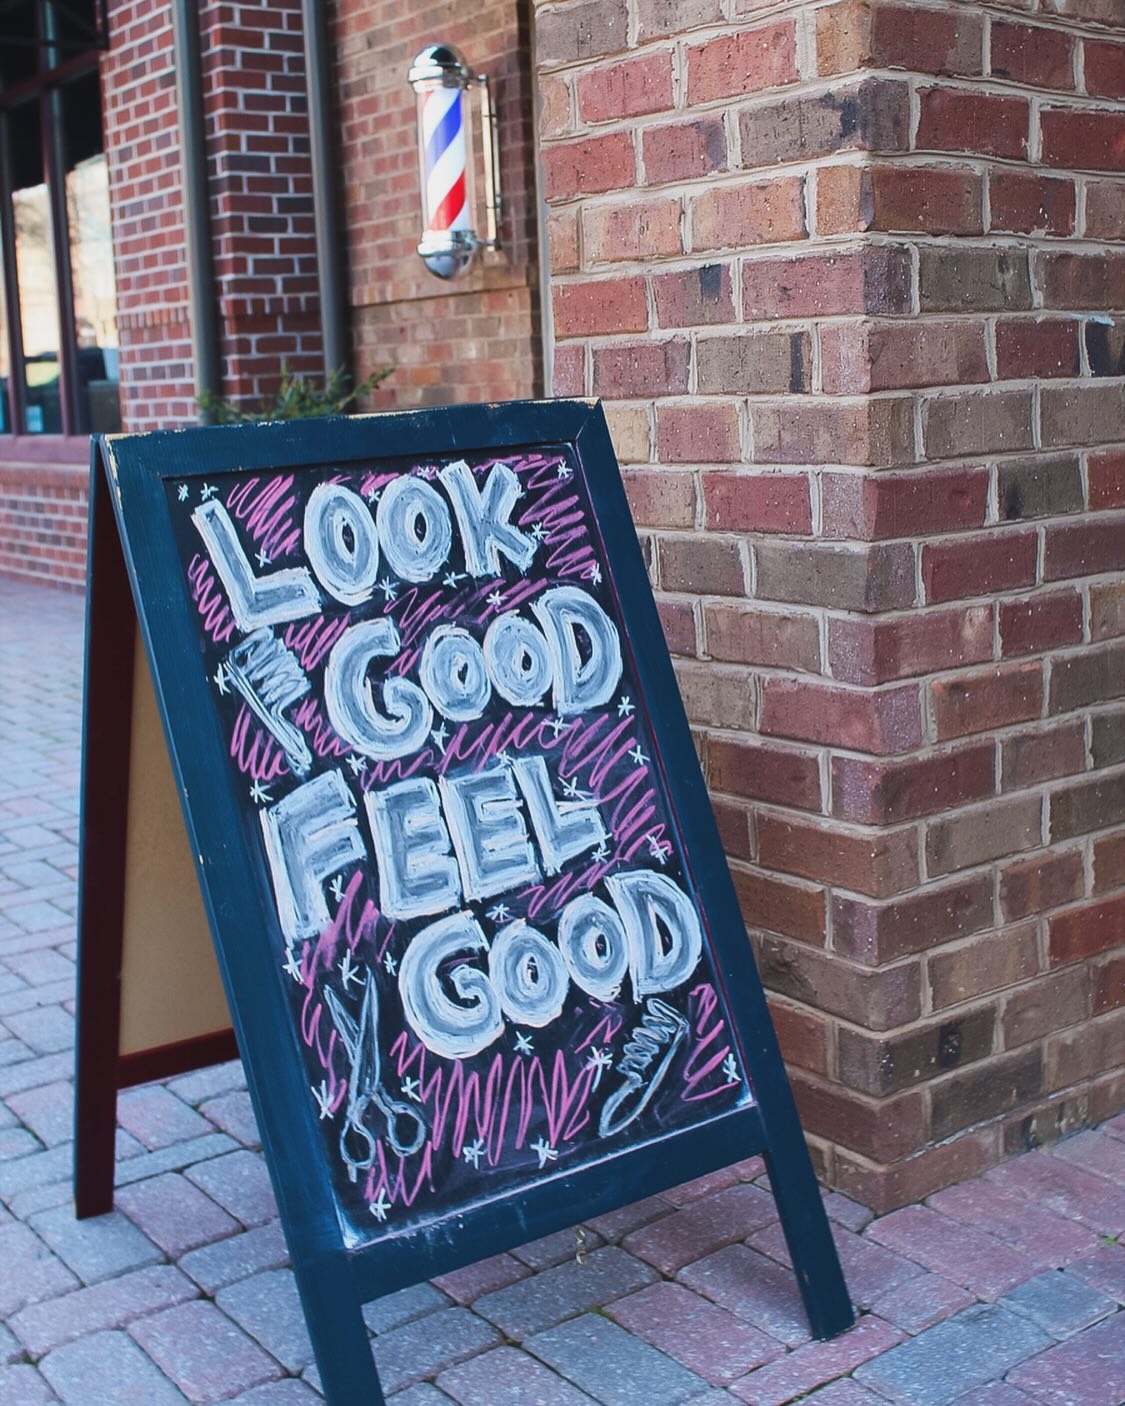 LOOK
GOOD
FEEL
GOOD